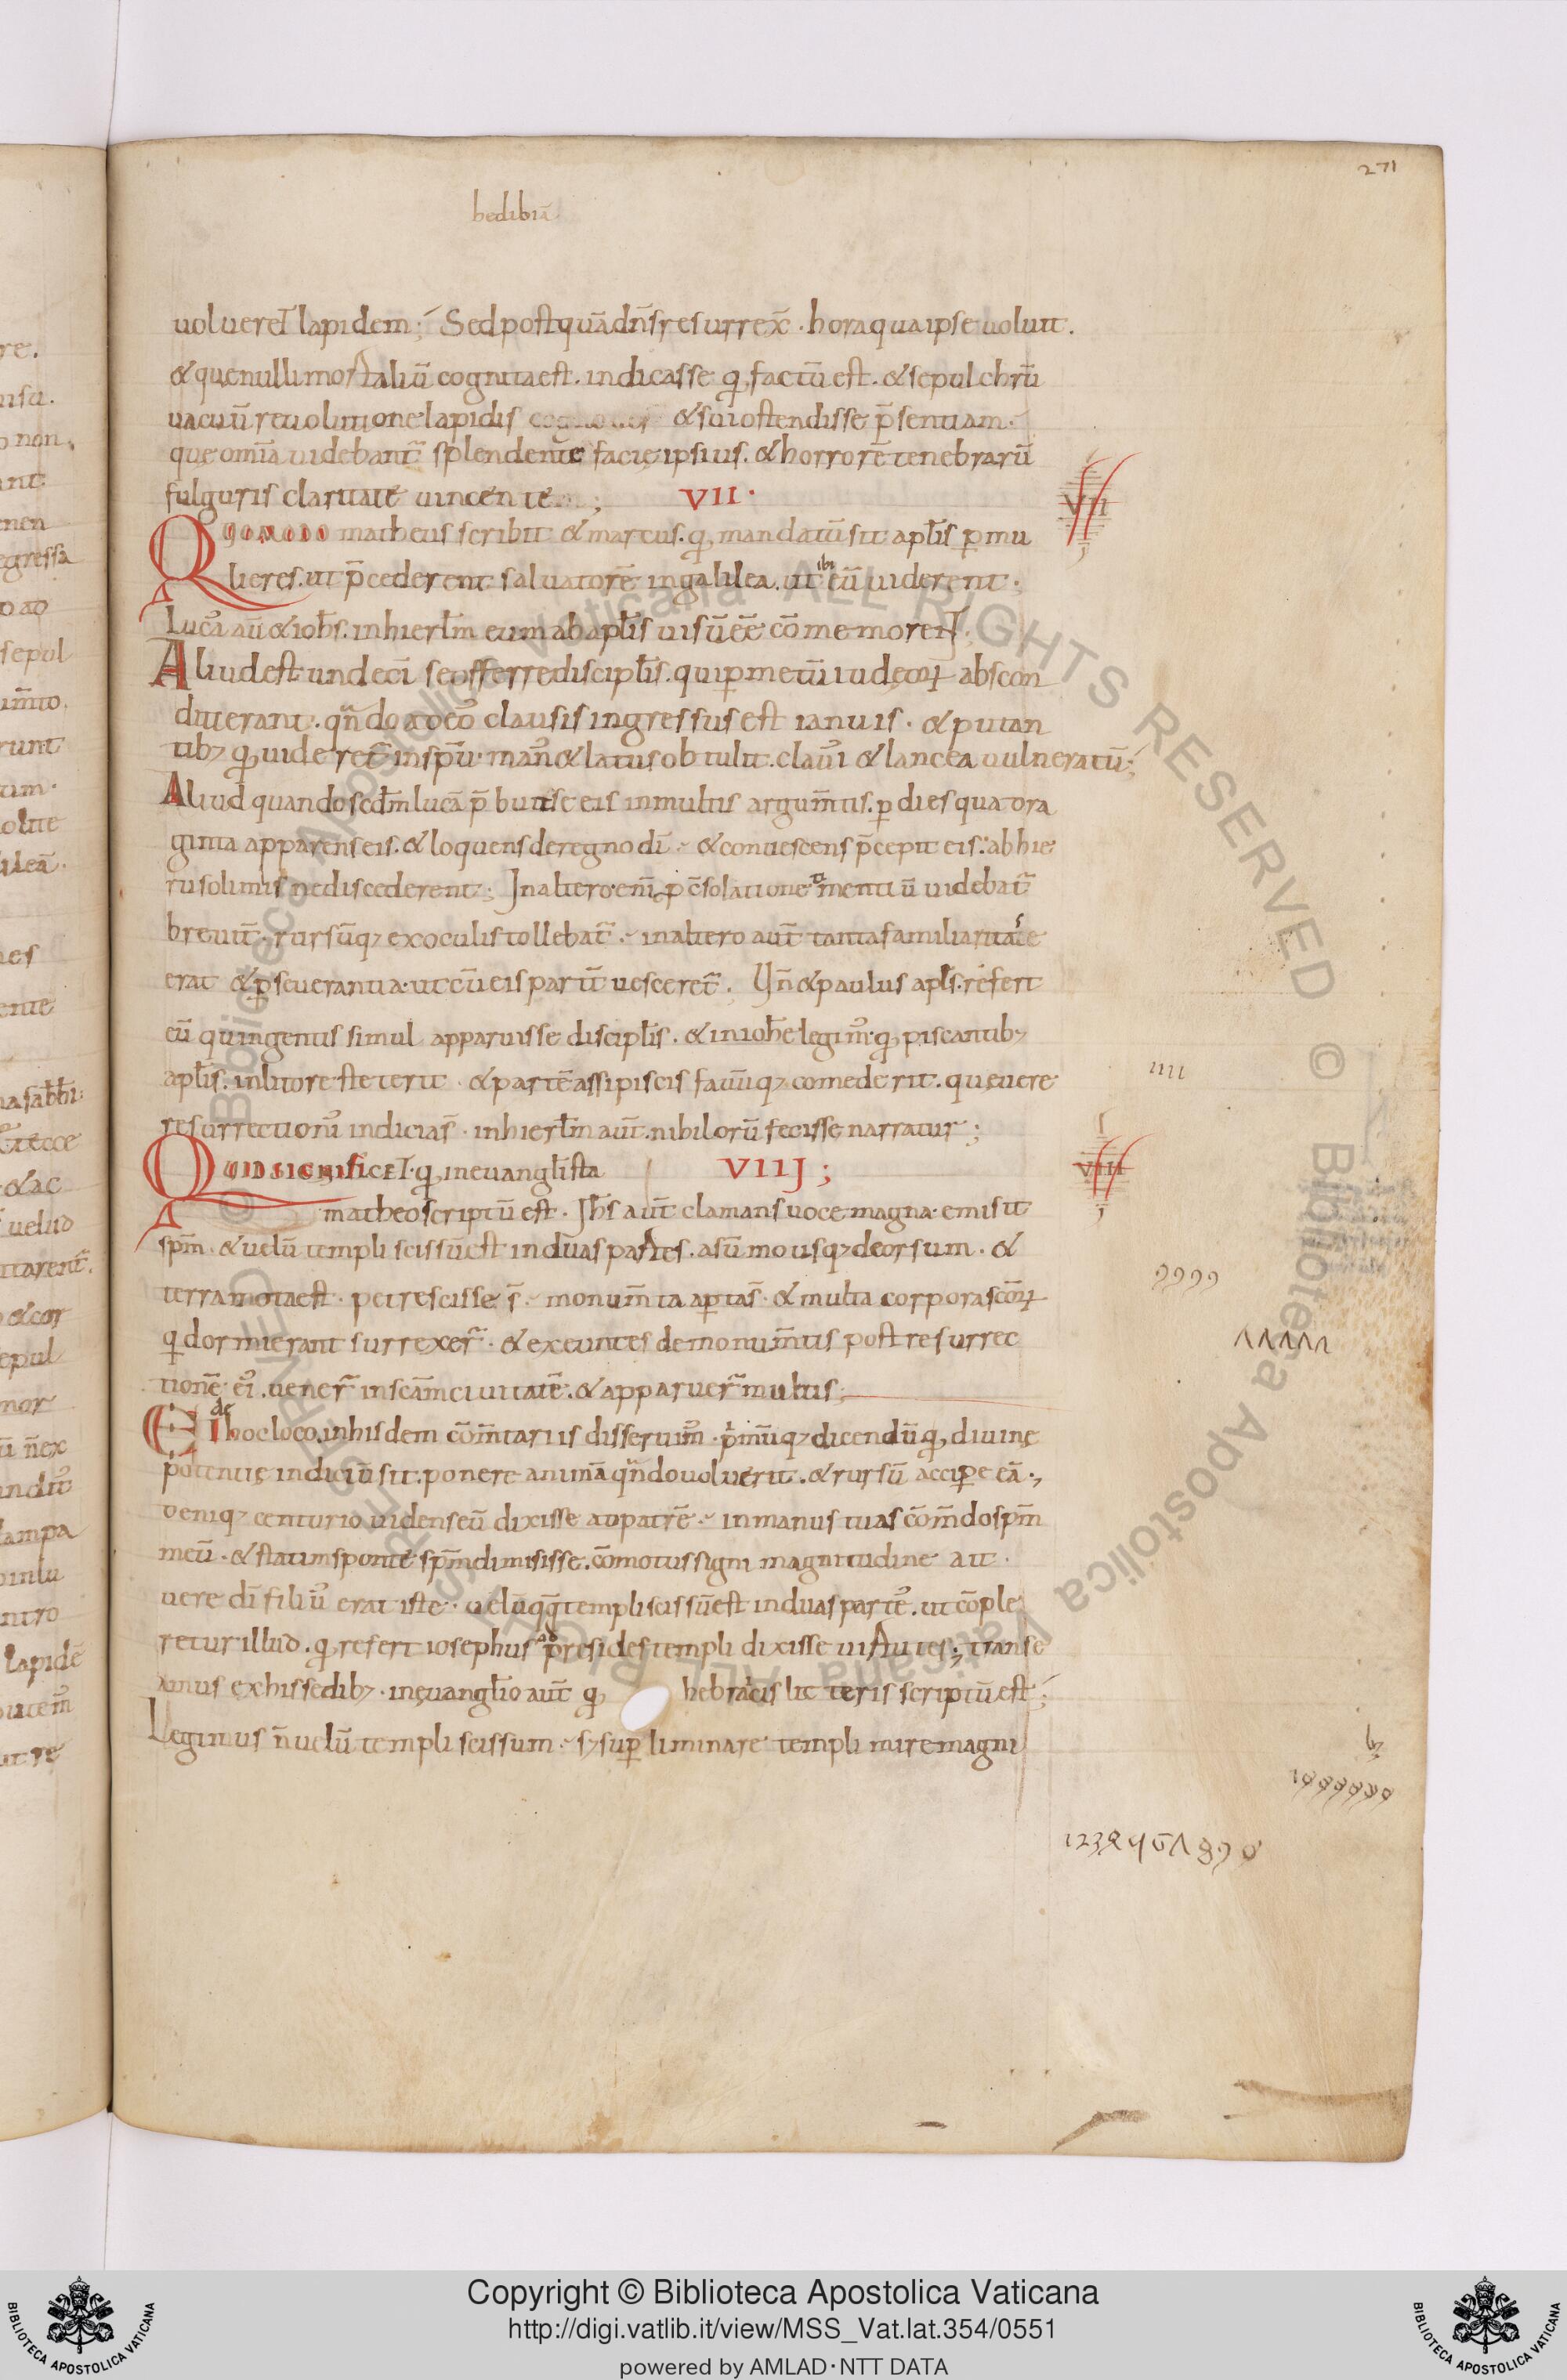 271
hedibiā
uoluereT lapidem; Sed postquā dn̄s resurrex̄ · hora qua ipse uoluit.
& quę nulli mortaliū cognita est. indicasse qđ factū est. & sepulchrū
uacuū reuolutione lapidis & sui ostendisse p̄sentiam.
quę om̄ia uidebant᷑ splendente facię ipsius. & horrorē tenebrarū
fulguris claritate uincente ; VII ·
VII
QUOMODO matheus scribit & marcus. qđ mandatū sit apłis ꝑ mu
lieres. ut p̄cederent saluatorē in galilea. ut ibi eū uiderent.
Lucas aū & iohs. in hierłm eum ab apłis uisū eē cōmemoreNT.
Aliud est undecī se offerre disciplis. qui ꝑ metū iudęoꝝ abscon
diti erant. qn̄do ad eos clausis ingressus est ianuis. & putan
tibꝫ qđ uideret᷑ in spm̄. manus & latus obtulit. clauis & lancea uulneratū;
Aliud quando scdm̄ lucā p̄buit se eis in multis argumtis. ꝑ dies quatora
ginta apparens eis. & loquens de regno dī. & conuescens p̄cepit eis. ab hie
rusolimis ne discederent; In altero enī ꝑ cōsolatione timentiū uidebat᷑
breuit̄. rursūqꝫ ex oculis tollebat᷑. in altero aūt tanta familiaritas
erat & ꝑseuerantia. ut cū eis parit̄ uesceret᷑. Un̄ & paulus apłs. refert
eū quingentis simul apparuisse disciplis. & in iohe legimus. qđ piscantibꝫ
apłis. in litore steterit. & partē assi piscis fauūqꝫ comederit. quę uere
ıııı
resurrectionis indicia s̄. in hierłm aūt. nihil orū fecisse narratur;
QUID SIGNIFICET. qđ in euanglista VIIJ ;
VIII
matheo scriptū est. Ihs aūt clamans uoce magna. emisit
spm̄. & uelū templi scissū est in duas partes. a sūmo usqꝫ deorsum. &
terra mota est. petre scisse s̄. monumta aꝑta s̄. & multa corpora scōꝝ
9999
qđ dormierant surrexer̄. & exeuntes de monumtis post resurrec
ΛΛΛΛΛ
tionē ei. uener̄ in scām ciuitatē. & apparuer̄ multis;
E de hoc loco. in hisdem cōmtariis disseruim᷒. prīmūqꝫ dicendū qđ diuinę
potentię indiciū sit. ponere animā qn̄do uoluerit. & rursū acciꝑe eā.,
deniqꝫ centurio uidens eū dixisse ad patrē. in manus tuas cōmdo spm̄
meū. & statim sponte spm̄ dimisisse. cōmotus signi magnitudine ait.
uere dī filius erat iste. uelū qq̄ templi scissū est in duas partes. ut cōple
retur illud. qđ refert iosephus presides templi dixisse uirtutes; transe
amus ex his sedibꝫ. in euanglio aūt qđ hebraicis litteris scriptū est;
Legimus n̄ uelū templi scissum. sꝫ suꝑ liminare templi mire magni
Copyright © Biblioteca Apostolica Vaticana
http://digi.vatlib.it/view/MSS_Vat.lat.354/0551
powered by AMLAD·NTT DATA
BIBLIOTECA APOSTOLICA VATICANA
BIBLIOTECA APOSTOLICA VATICANA